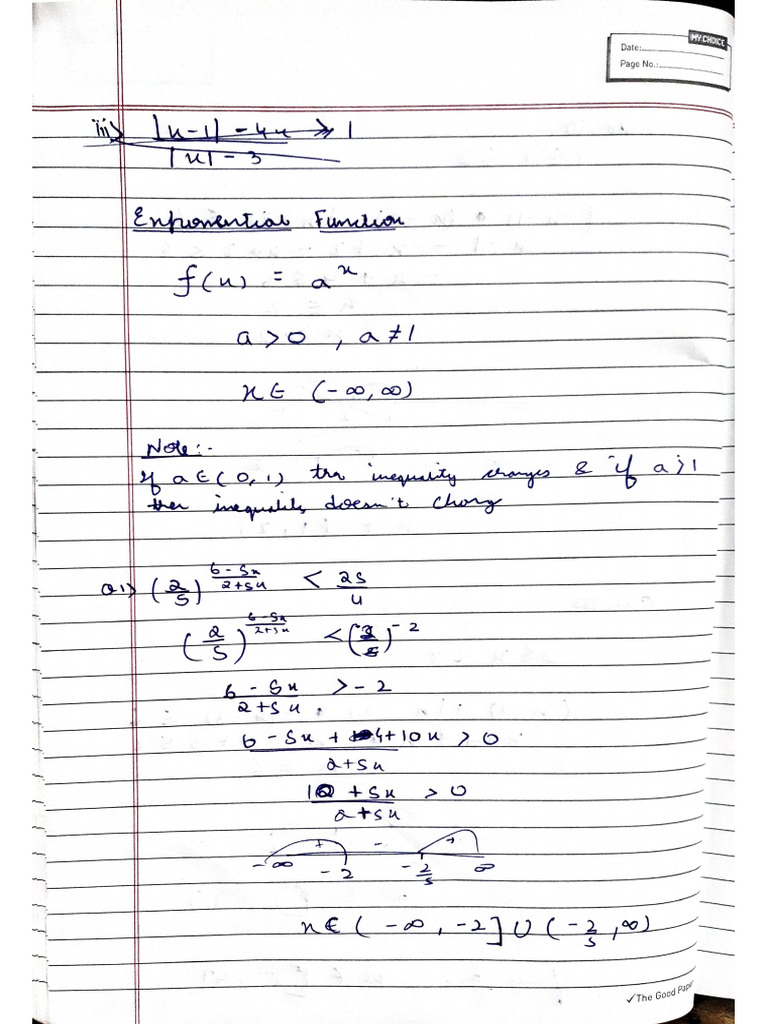 MY CHOICE
Date:
Page No.:
iii) |x-1| - 4x ≥ 1
|x| - 3
Exponential Function
f(x) = a^x
a>0 , a≠1
x∈ (-∞,∞)
Note:-
If a∈(0,1) the inequality changes & if a>1
then inequality doesn't chang
Q1) (2/5)^(6-5x/2+5x) < 25/4
(2/5)^(6-5x/2+5x) < (2/5)^-2
6-5x/2+5x > -2
6-5x+4+10x/2+5x > 0
10+5x/2+5x > 0
+ - +
-∞ -2 -2/5 ∞
x∈ (-∞, -2] ∪ (-2/5, ∞)
✓The Good Paper